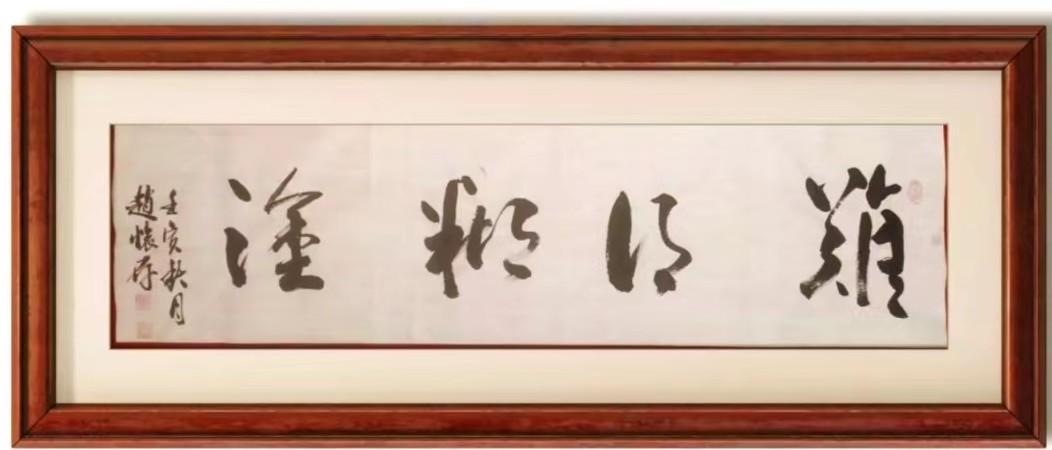 難得糊塗
壬寅秋月
趙懷存